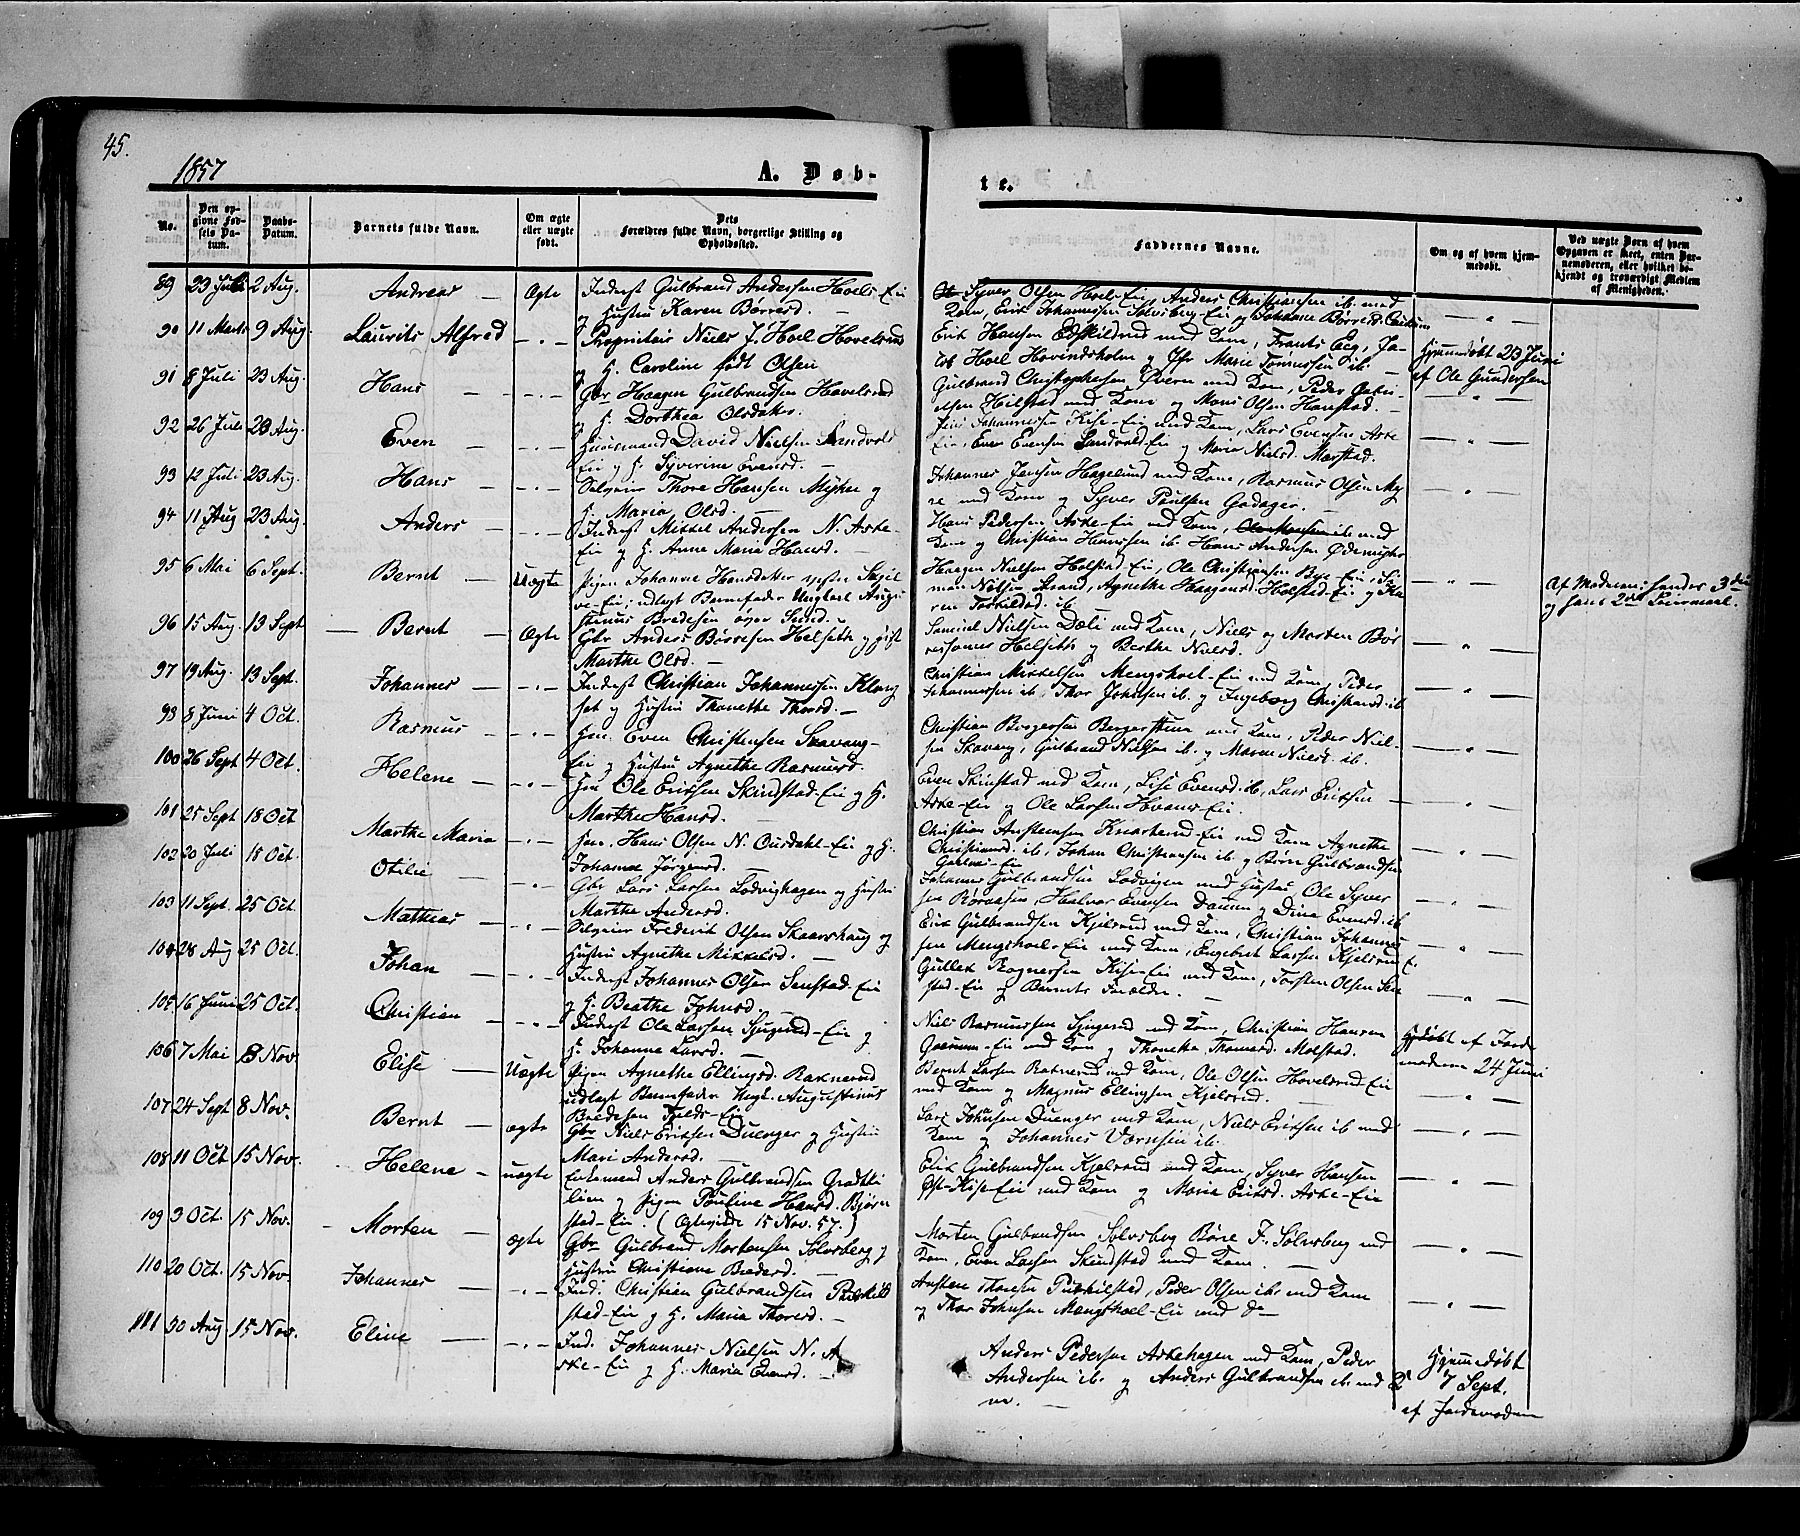 45.
1857
A. Døb-
te.
No.
Den opgivne Fødsels Datum.
Daabs-Datum.
Barnets fulde Navn.
Om ægte eller uægte født.
Dets Forældres fulde Navn, borgerlige Stilling og Opholdssted.
Faddernes Navne.
Om og af hvem hjemmedøbt.
Ved uægte Børn af hvem Opgaven er skeet, enten Barnemoderen, eller hvilket bekjendt og troværdigt Medlem af Menigheden.
89 23 Juli 2 Aug. Andreas — Ægte Inderst Gulbrand Andersen Hoels-Eie
og Hustru Karen Børresd. —
Syver Olsen Hoel-Eie, Anders Christiansen ib. med
Kone, Erik Johannessen Solvsberg-Eie og Johanne Børresd.
90 11 Marts 9 Aug. Laurits Alfred — " — Proprietair Niels J. Hoel Hovelsrud
og H. Caroline født Olsen
Erik Hansen Eskildrud med Kone, Frants Eeg, Ja-
cob Hoel Hovindsholm og Jfr Marie Tønnessen ib. —
Hjemmedøbt 23 Juni
af Ole Gundersen
91 8 Juli 23 Aug. Hans — " — Gbr Haagen Gulbrandsen Hovelsrud
og H. Dorthea Olsdatter
Gulbrand Christophersen Øvern med Kone, Peder
Olsen Hilstad med Kone og Mons Olsen Hanstad. —
92 26 Juli 23 Aug. Even — " — Huusmand David Nielsen Sandvold
Eie og H. Syverine Evensd. —
Johannessen Kise-Eie med Kone, Lars Evensen Aske
Eie, Even Evensen Sandvold-Eie og Maria Nielsd. Mærstad.
93 12 Juli 23 Aug. Hans — " — Selveier Thore Hansen Myhre og
H. Maria Olsd. —
Johannes Jensen Hagelund med Kone, Rasmus Olsen My-
re med Kone og Syver Poulsen Gadager. —
94 11 Aug 23 Aug. Anders — " — Inderst Mikkel Andersen N. Aske-
Eie og H. Anne Maria Hansd. —
Hans Pedersen Aske-Eie med Kone, Ole Monsen ib. med
Kone og Christian Hansen ib. Hans Andersen
95 6 Mai 6 Sept. Bernt — Uægte Pigen Johanne Hansdatter
-Eie; udlagt Barnefader Ungkarl Augu-
stinus Bredesen øvre Sund. —
Haagen Nielsen Holstad-Eie, Ole Christiansen Bye-Eie, Si-
mon Nilsen Strand, Agnethe Haagensd. Holstad-Eie og Ka-
ren Torkildsd. ib.
Af Moderen;
96 15 Aug. 13 Sept — Bernt — Ægte Gbr Anders Børresen Helseth og
Marthe Olsd. —
Samuel Nielsen Dæli med Kone, Niels og Morten Bør-
resønner Helseth og Berthe Nielsd.
97 19 Aug. 13 Sept. Johannes — " — Inderst Christian Johannessen Klong
set og Hustru Thonette Thorsd. —
Christian Mikkelsen Mengshoel-Eie med Kone, Peder
Johannessen ib. Thor Johnsen ib. og Ingeborg Christiansd. ib.
98 8 Juni 4 Oct. Rasmus — " — Huu. Even Christensen Skavang-
Eie og Hustru Agnethe Rasmusd.
Christian Borgersen Borgersthuen med Kone, Peder Niel-
sen Skavang, Gulbrand Nielsen ib. og Maren Nielsd. ib.
100 26 Sept 4 Oct. Helene — " — Huu Ole Eriksen Skindstad-Eie og H.
Marthe Hansd. —
Even Skindstad med Kone, Lise Evensd. ib., Lars Eriksen
Aske-Eie og Ole Larsen Hvams-Eie.
101 25 Sept 18 Oct Marthe Maria — " — Huu. Hans Olsen N. Ousdahl-Eie og H.
Johanne Jørgensd. —
Christian Anstensen Knarterud-Eie med Kone Agnethe
Christiansd. ib. Johan Christiansen ib. og Børre Gulbrandsen
102 20 Juli 18 Oct. Otilie — " — Gbr Lars Larsen Lodvighagen og Hustru
Marthe Andersd.
Johannes Gulbrandsen Lodvigen med Hustru, Ole Syver
sen Rørvasen, Halvor Evensen og Dina Evensd. ib
103 11 Sept. 25 Oct. Mathias — " — Selveier Frederik Olsen Skaarshaug og
Hustru Agnethe Mikkelsd. —
Erik Gulbrandsen Kjelsrud med Kone, Christian Johannes-
sen Mengshoel-Eie med Kone, Engebret Larsen Kjelsrud E.
104 28 Aug 25 Oct. Johan — " — Inderst Johannes Olsen Senstad-Eie
og H. Beathe Johnsd. —
Gullek Rognersen Kise-Eie med Kone, Torsten Olsen Sen
stad-Eie og Barnets Forældre. —
105 16 Juni 25 Oct. Christian — " — Inderst Ole Larsen Sjugerud-Eie og
H. Johanne Larsd. —
Niels Rasmussen Sjugerud med Kone, Christian Hansen
-Eie med Kone og Thonette Thomasd. Molstad.
Hjdøbt af Jorde
moderen 24 Juni
106 7 Mai 8 Nov Elise — Uægte Pigen Agnethe Ellingsd. Raknerud
udlagt Barnefader Ungk. Augustinus
Bredesen Fjelds-Eie
Bernt Larsen Raknerud med Kone, Ole Olsen Hovelsrud Eie
med Kone og Magnus Ellingsen Kjelsrud. —
107 24 Sept 8 Nov. Bernt — ægte Gbr Niels Eriksen Duenger og Hustru
Mari Andersd. —
Lars Johnsen Duenger med Kone, Niels Eriksen ib med
Kone og Johannes ib.
108 11 Oct 15 Nov. Helene — uægte Enkemand Anders Gulbrandsen
lien og Pigen Pauline Hansd. Bjørn
stad-Eie. (Ægteviede 15 Nov. 57.)
Erik Gulbrandsen Kjelsrud med Kone, Syver Hansen
Øst-Kise-Eie med Kone og Maria Eriksd. Aske-Eie
109 3 Oct. 15 Nov. Morten — ægte Gbr Gulbrand Mortensen Sølvsberg og
Hustru Christiane Bredesd. —
Morten Gulbrandsen Sølvsberg Børre F. Sølvsberg med
Kone, Even Larsen Skindstad med Kone. —
110 20 Oct. 15 Nov. Johannes — " — Ind. Christian Gulbrandsen
stad-Eie og H. Maria Thoresd. —
Austen Thoresen Peder Olsen ib. med Kone
og Thor Johnsen Mengshoel-Eie med do
111 30 Aug 15 Nov. Eline — " — Ind. Johannes Nielsen N. A
ske-Eie og H. Maria Evensd. —
Anders Pedersen Askehagen med Kone, Peder
Andersen ib. og Anders Gulbrandsen ib. med Ko
ne. —
Hjemmedøbt
7 Sept.
af Jordemoderen